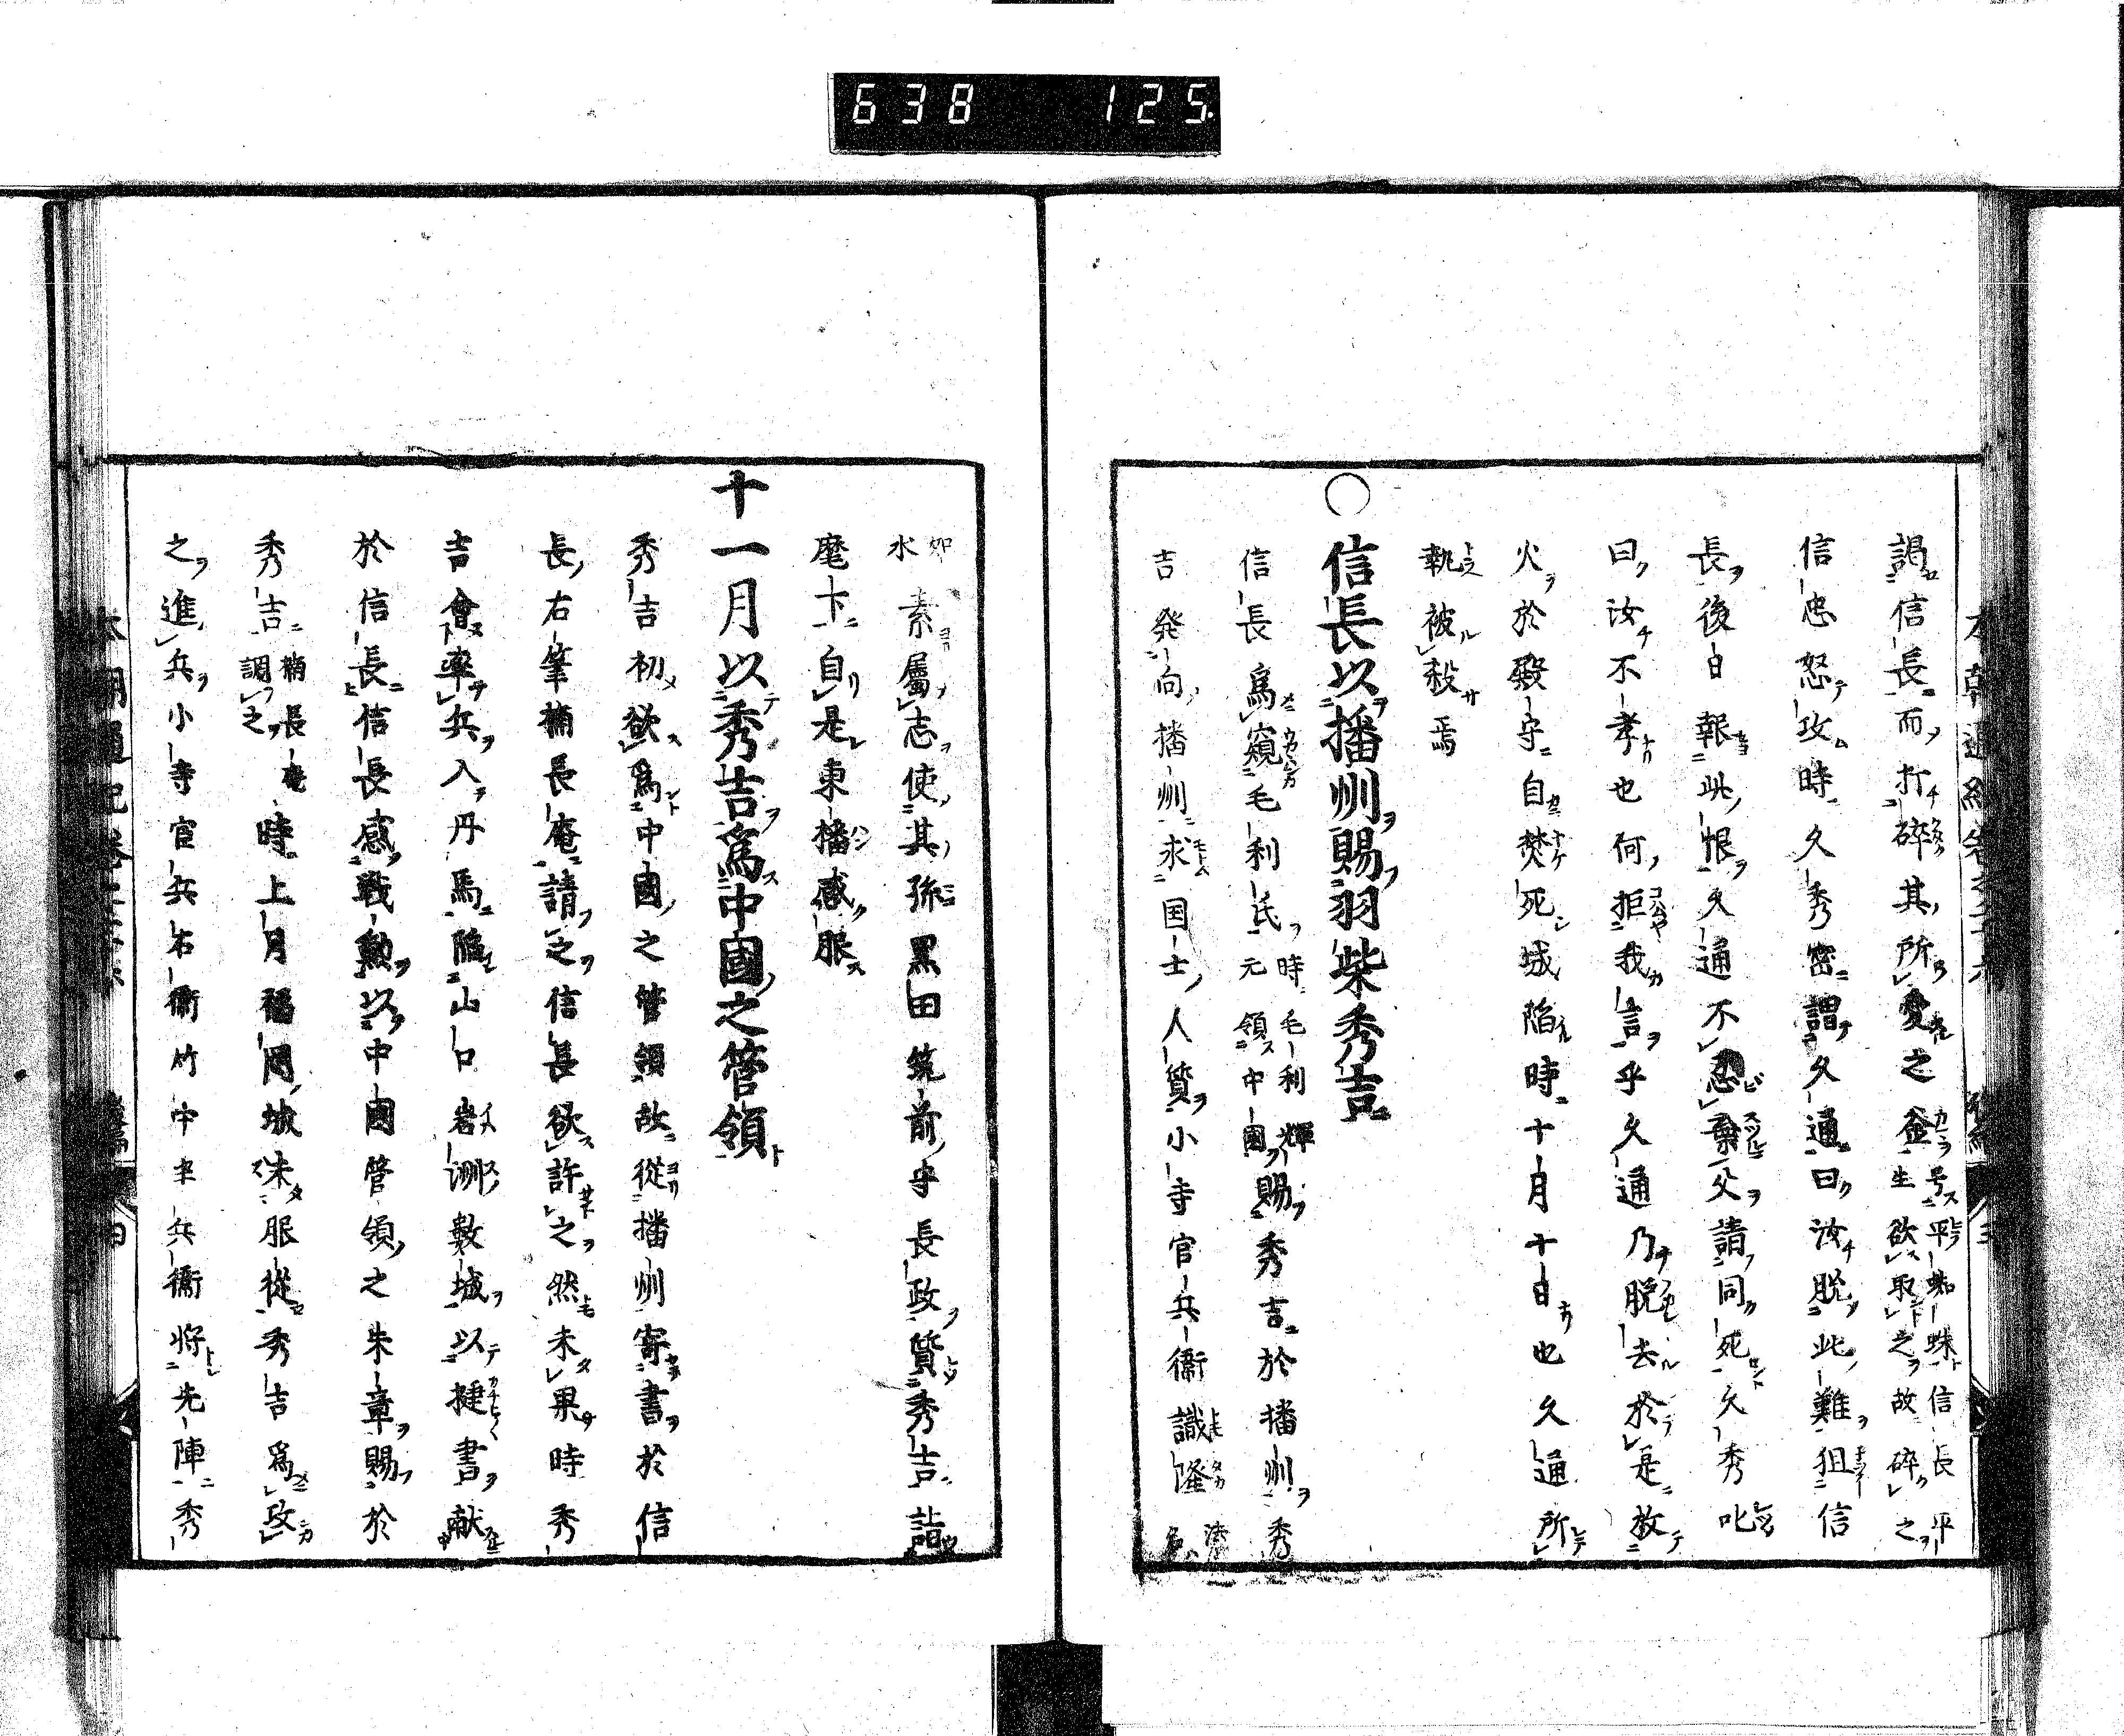 638 125.
謁信長而打碎其所愛之釜号平蜘蛛信長平
生欲取之故碎之
信忠怒攻時久秀密謂久通曰汝脱此難狙信
長後日報此恨久通不忍棄父請同死久秀叱
曰汝不孝也何拒我言乎久通乃脱去於是放
火於殿守自焚死城陥時十月十日也久通所
執被殺焉
○信長以播州賜羽柴秀吉
信長爲窺毛利氏時毛利輝
元領中國賜秀吉於播州秀
吉発向播州求国士人質小寺官兵衞識隆
如
水素屬志使其孫黒田筑前守長政質秀吉詣
麾下自是東播感服
十一月以秀吉爲中國之管領
秀吉初欲爲中國之管領故從播州寄書於信
長右筆楠長庵請之信長欲許之然未果時秀
吉會率兵入丹馬陥山口岩洲數城以捷書献
於信長信長感戰勲以中國管領之朱章賜於
秀吉楠長庵
調之時上月福岡城未服從秀吉爲攻
之進兵小寺官兵右衞竹中半兵衞將先陣秀